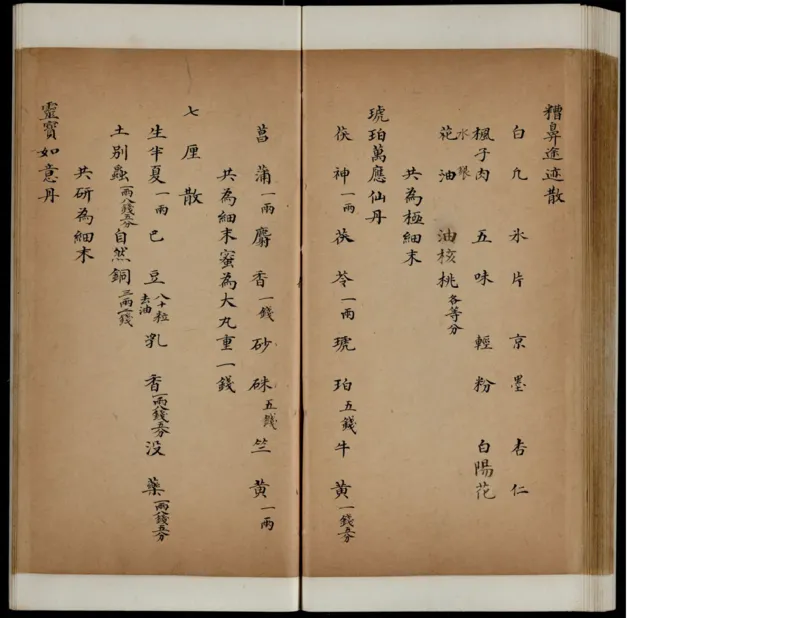 糟鼻途迹散
白凢 氷片 京墨 杏仁
楓子肉 五味 輕粉 白陽花
水銀 花油 油核桃 各等分
共為極細末
琥珀萬應仙丹
茯神一兩 茯苓一兩 琥珀五錢 牛黃一錢五分
菖蒲一兩 麝香一錢 砂硃五錢 竺黃一兩
共為細末蜜為大丸重一錢
七厘散
生半夏一兩 巴豆八十粒去油 乳香一兩八錢五分 没藥一兩八錢五分
土別蟲一兩八錢五分 自然銅三兩一錢
共研為細末
靈寳如意丹